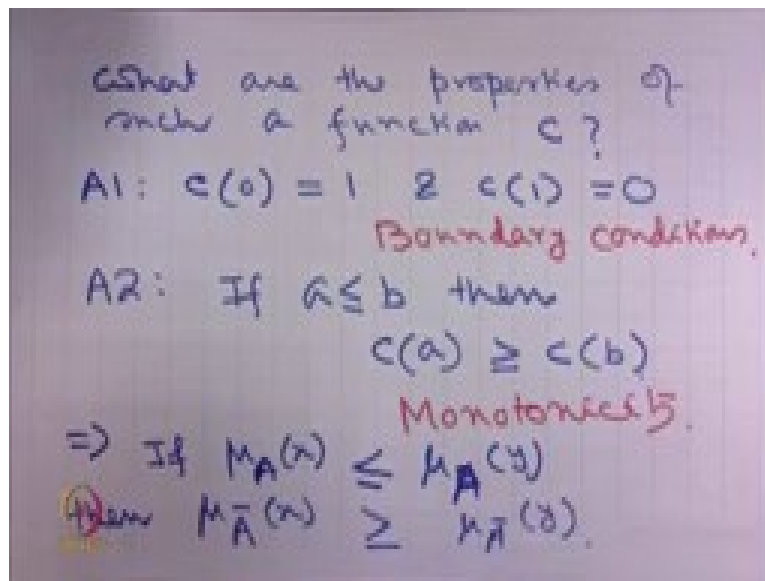 What are the properties of
such a function c?
A1: c(0) = 1 & c(1) = 0
Boundary conditions.
A2: If a ≤ b then
c(a) ≥ c(b)
Monotonicity.
⇒ If μ_A(x) ≤ μ_A(y)
then μ_Ā(x) ≥ μ_Ā(y).